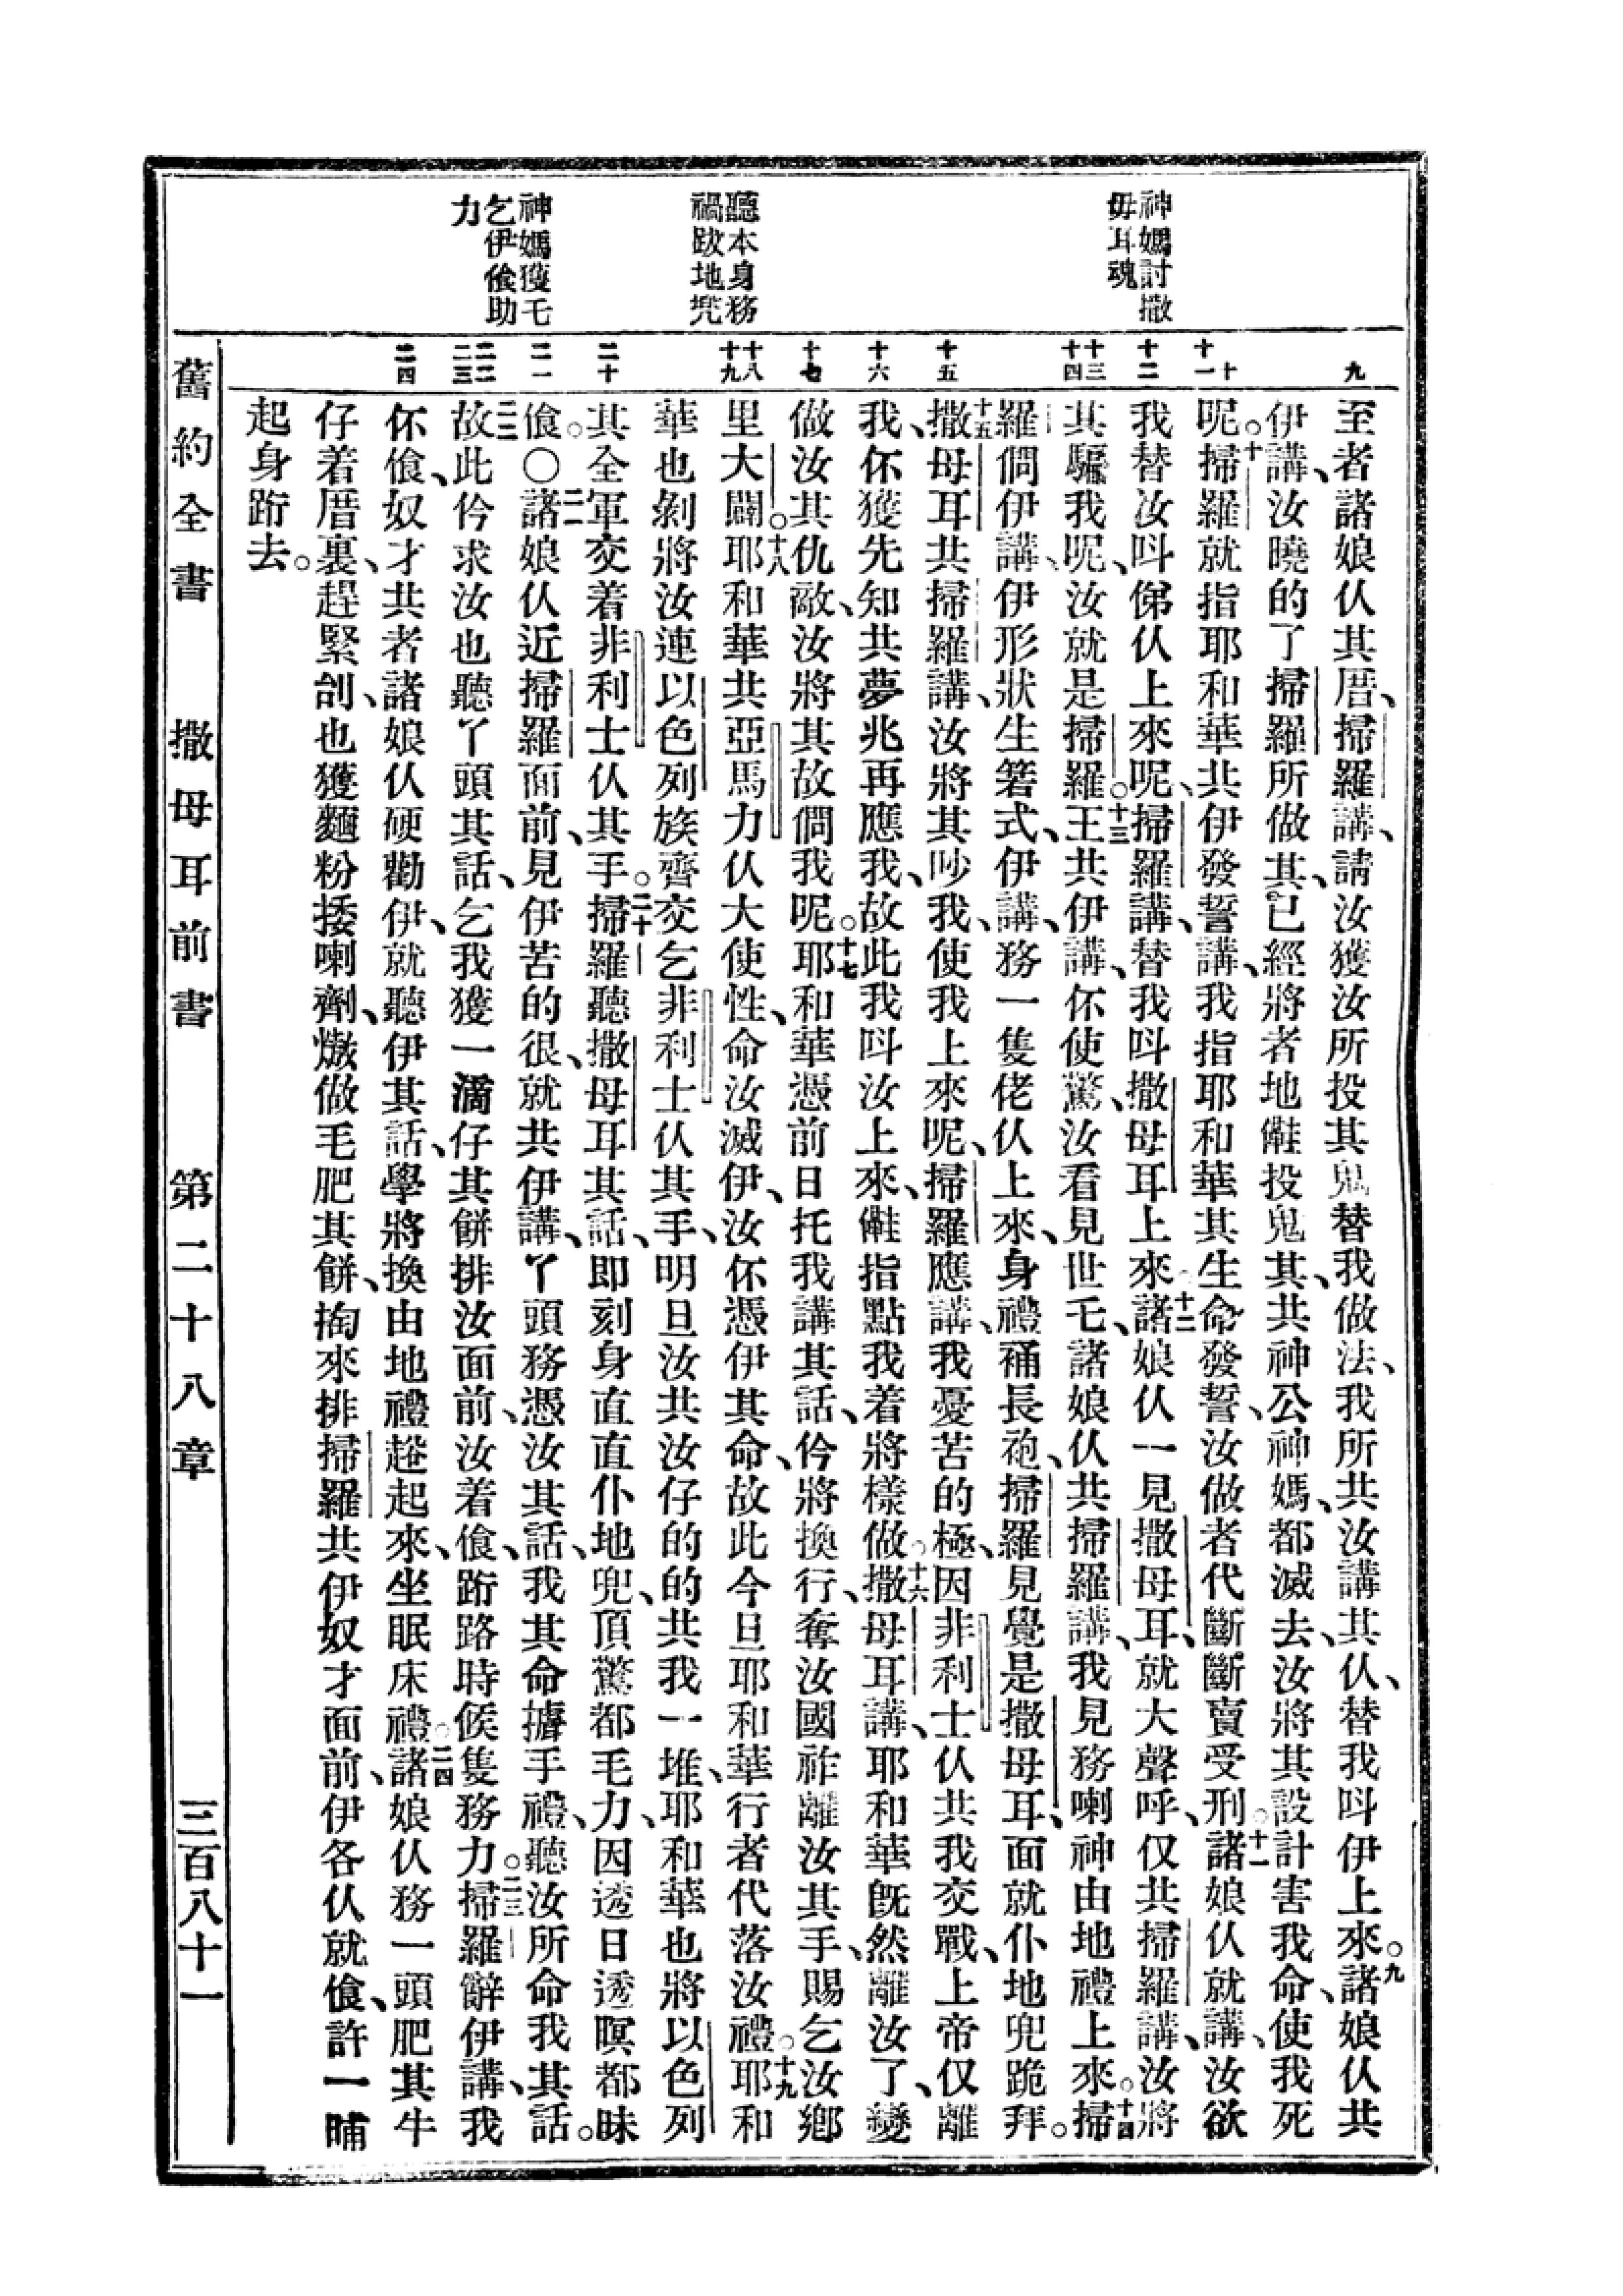 神媽討撒
毋耳魂
聽本身務
禍跋地兜
神媽獲乇
乞伊飧助
力
九
十
十一
十二
十三
十四
十五
十六
十七
十八
十九
二十
二一
二二
二三
二四
至者諸娘仈其厝、掃羅講、請汝獲汝所投其鬼替我做法、我所共汝講其仈、替我呌伊上來。九諸娘仈共
伊講、汝曉的了掃羅所做其、已經將者地㒰投鬼其、共神公神媽、都滅去、汝將其設計害我命、使我死
呢。十掃羅就指耶和華共伊發誓講、我指耶和華其生命發誓、汝做者代斷斷賣受刑。十一諸娘仈就講、汝欲
我替汝呌㑚仈上來呢、掃羅講、替我呌撒母耳上來。十二諸娘仈一見撒母耳、就大聲呼、仅共掃羅講、汝將
其騙我呢、汝就是掃羅。十三王共伊講、伓使驚、汝看見世乇、諸娘仈共掃羅講、我見務喇神由地禮上來。十四掃
羅僩伊講、伊形狀生箬式、伊講、務一隻佬仈上來、身禮䘄長袍、掃羅見覺是撒母耳、面就仆地兜跪拜。
十五撒母耳共掃羅講、汝將其吵我、使我上來呢、掃羅應講、我憂苦的極、因非利士仈共我交戰、上帝仅離
我、伓獲先知共夢兆再應我、故此我呌汝上來、㒰指點我着將樣做。十六撒母耳講、耶和華旣然離汝了、變
做汝其仇敵、汝將其故僩我呢。十七耶和華憑前日托我講其話、仱將換行、奪汝國祚離汝其手、賜乞汝鄉
里大闢。十八耶和華共亞馬力仈大使性、命汝滅伊、汝伓憑伊其命、故此今旦耶和華行者代落汝禮。十九耶和
華也剝將汝連以色列族齊交乞非利士仈其手、明旦汝共汝仔的的共我一堆、耶和華也將以色列
其全軍交着非利士仈其手。二十掃羅聽撒母耳其話、即刻身直直仆地兜、頂驚都毛力、因透日透暝都昧
飧。○二一諸娘仈近掃羅面前、見伊苦的很、就共伊講、丫頭務憑汝其話、我其命摴手禮、聽汝所命我其話。
二二故此仱求汝也聽丫頭其話、乞我獲一滴仔其餅排汝面前、汝着飧、䟰路時候隻務力。二三掃羅辭伊講、我
伓飧、奴才共者諸娘仈硬勸伊、就聽伊其話、學將換由地禮趖起來、坐眠床禮。二四諸娘仈務一頭肥其牛
仔着厝裏、趕緊刣、也獲麵粉捼喇劑、燬做毛肥其餅、掏來排掃羅共伊奴才面前、伊各仈就飧、許一晡
起身䟰去。
舊約全書　撒母耳前書　第二十八章　三百八十一